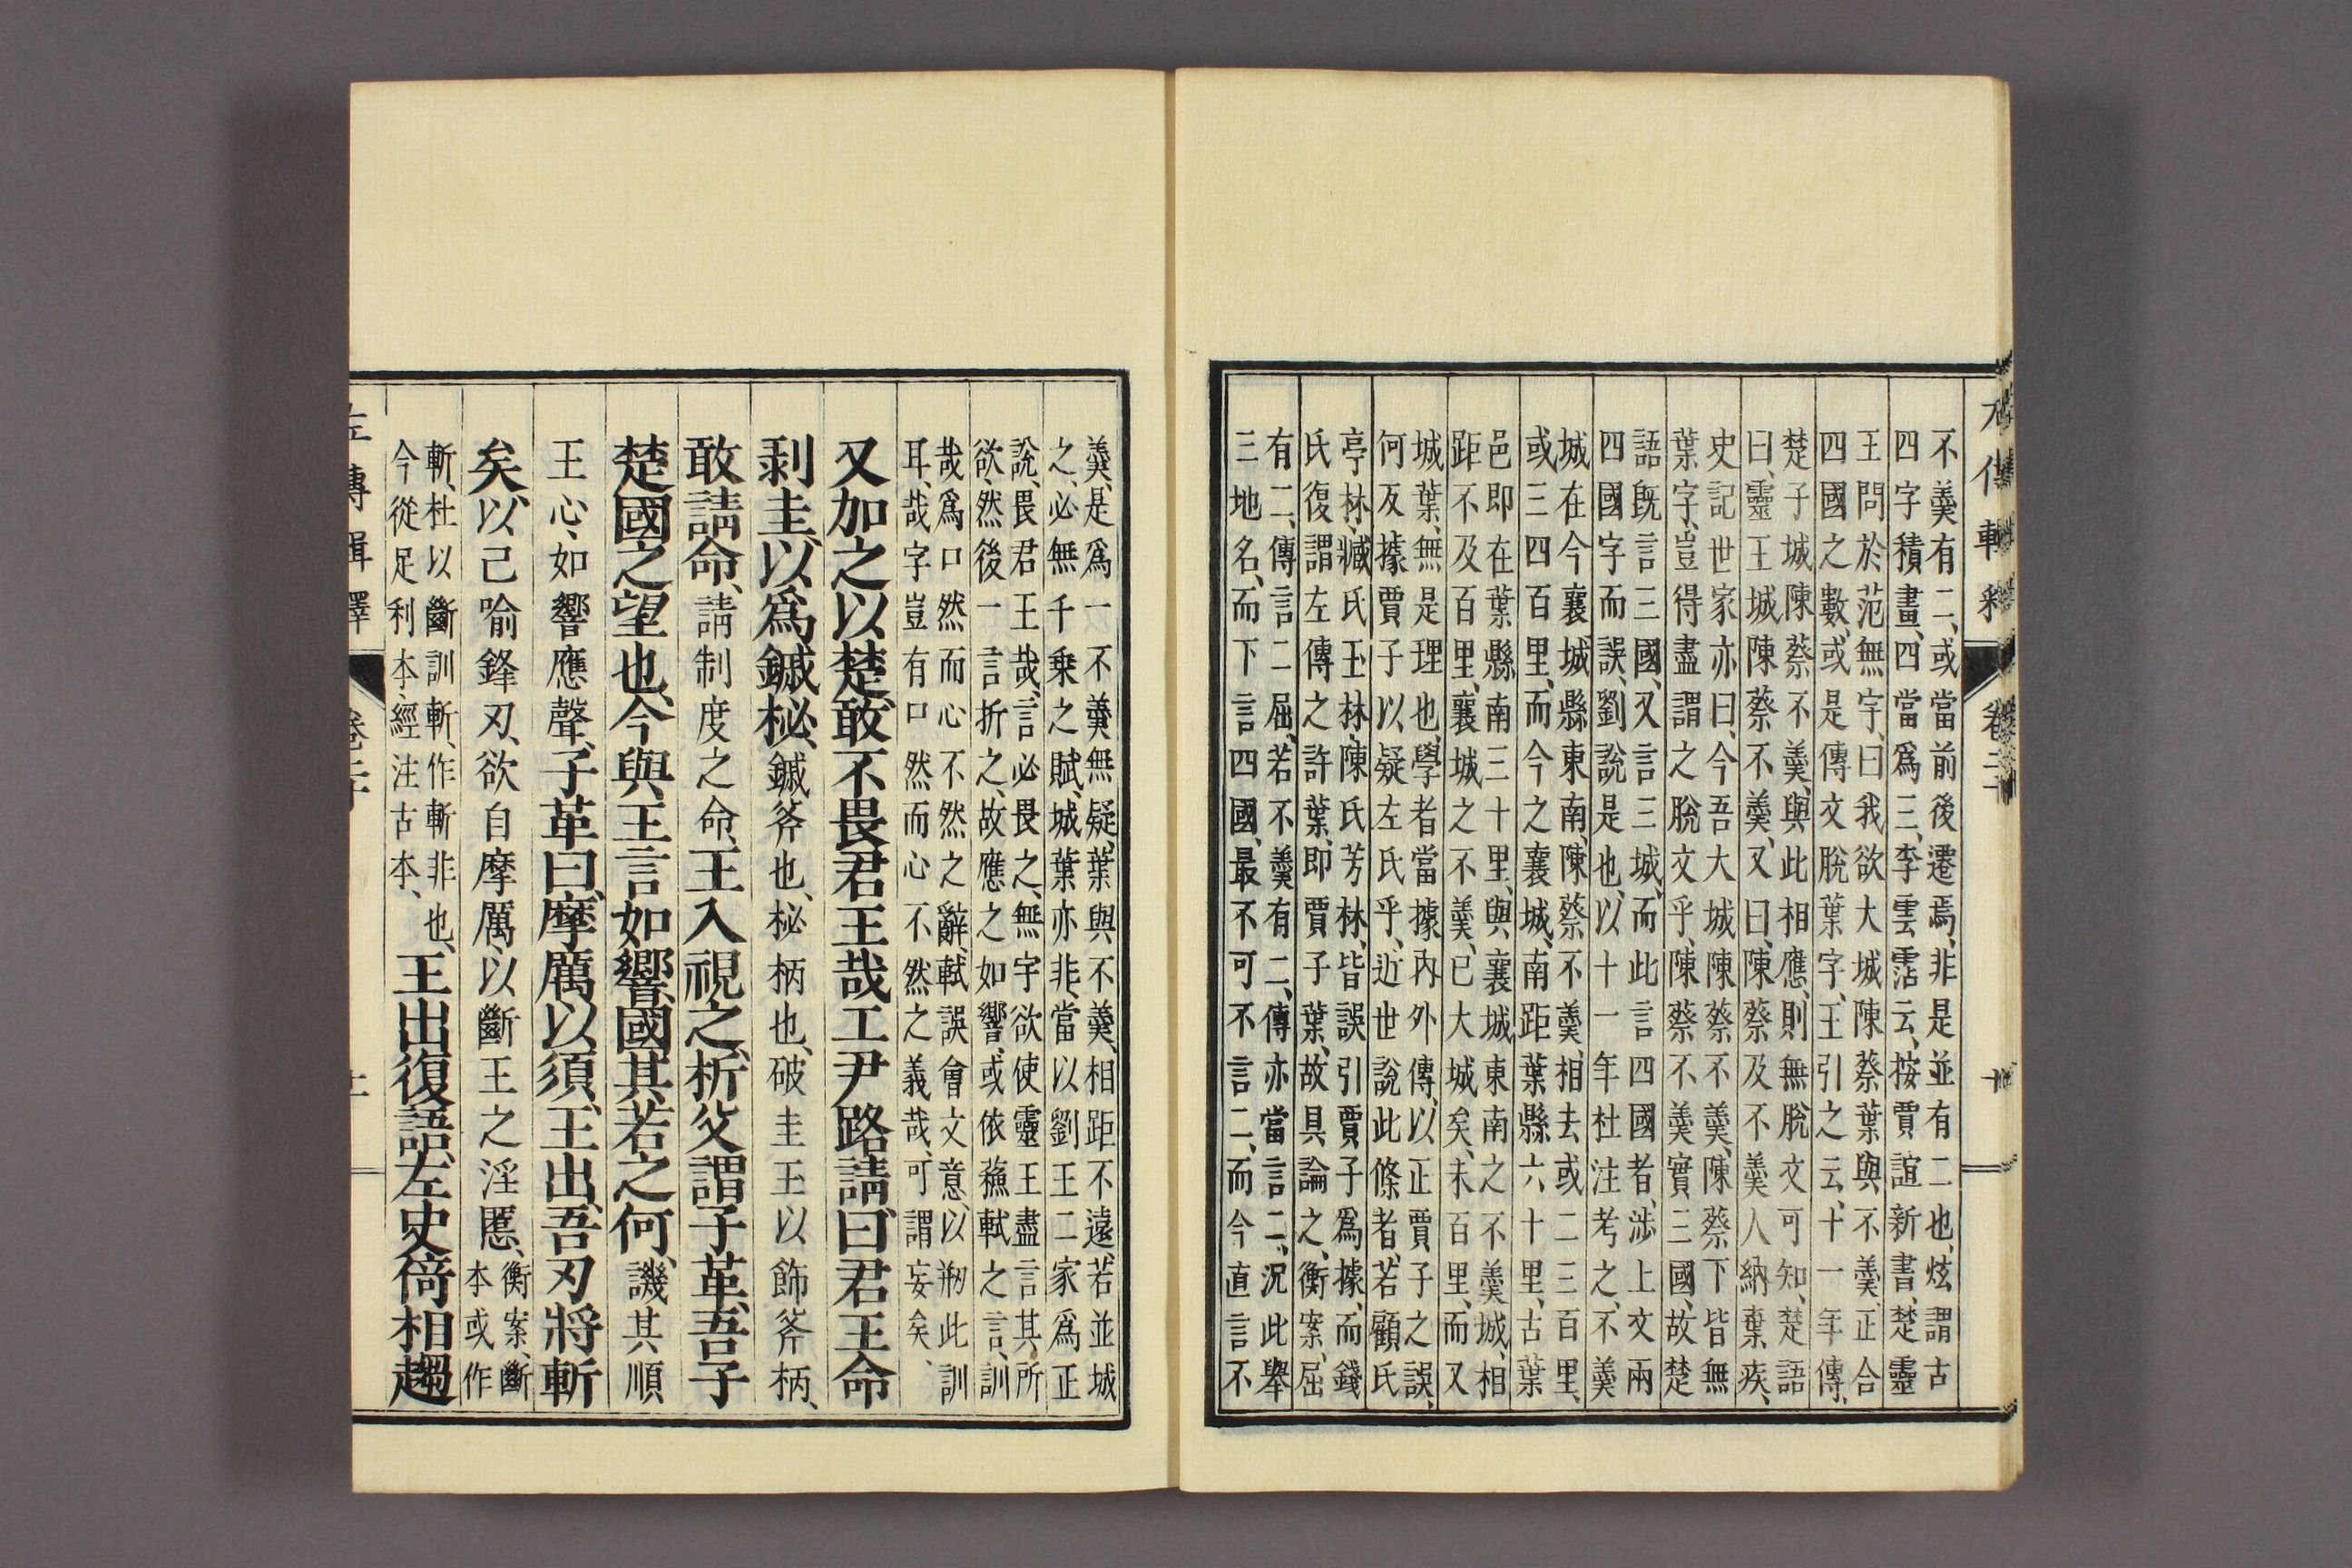 不羹有二、或當前後遷焉、非是並有二也、炫謂古
四字積畫、四當爲三、李雲霑云、按賈誼新書、楚靈
王問於范無宇、曰我欲大城陳蔡葉與不羹、正合
四國之數、或是傳文脫葉字、王引之云、十一年傳、
楚子城陳蔡不羹、與此相應、則無脫文可知、楚語
曰、靈王城陳蔡不羹、又曰、陳蔡及不羹人納棄疾、
史記世家亦曰、今吾大城陳蔡不羹、陳蔡下皆無
葉字、豈得盡謂之脫文乎、陳蔡不羹實三國、故楚
語既言三國、又言三城、而此言四國者、涉上文兩
四國字而誤、劉說是也、以十一年杜注考之、不羹
城在今襄城縣東南、陳蔡不羹、相去或二三百里、
或三四百里、而今之襄城、南距葉縣六十里、古葉
邑即在葉縣南三十里、與襄城東南之不羹城、相
距不及百里、襄城之不羹、已大城矣、未百里、而又
城葉、無是理也、學者當據內外傳、以正賈子之誤、
何反據賈子以疑左氏乎、近世說此條者、若顧氏
亭林、臧氏玉林、陳氏芳林、皆誤引賈子爲據、而錢
氏復謂左傳之許葉、即賈子葉、故具論之、衡案、屈
有二、傳言二屈、若不羹有二、傳亦當言二、況此舉
三地名、而下言四國、最不可不言二、而今直言不
羹、是爲一不羹無疑、葉與不羹、相距不遠、若並城
之、必無千乘之賦、城葉亦非、當以劉王二家爲正
說、畏君王哉、言必畏之、無宇欲使靈王盡言其所
欲、然後一言折之、故應之如響、或依蘓軾之言、訓
哉爲口然而心不然之辭、軾誤會文意、以剏此訓
耳、哉字豈有口然而心不然之義哉、可謂妄矣、
又加之以楚、敢不畏君王哉工尹路請曰君王命
剥圭、以爲鏚柲、鏚斧也、柲柄也、破圭玉以飾斧柄、
敢請命、請制度之命、王入視之、析父謂子革、吾子
楚國之望也、今與王言如響、國其若之何、譏其順
王心、如響應聲、子革曰、摩厲以須、王出、吾刃將斬
矣、以己喻鋒刃、欲自摩厲、以斷王之淫慝、衡案、斷
本或作
斬、杜以斷訓斬、作斬非也、
今從足利本、經注古本、
王出復語、左史倚相趨